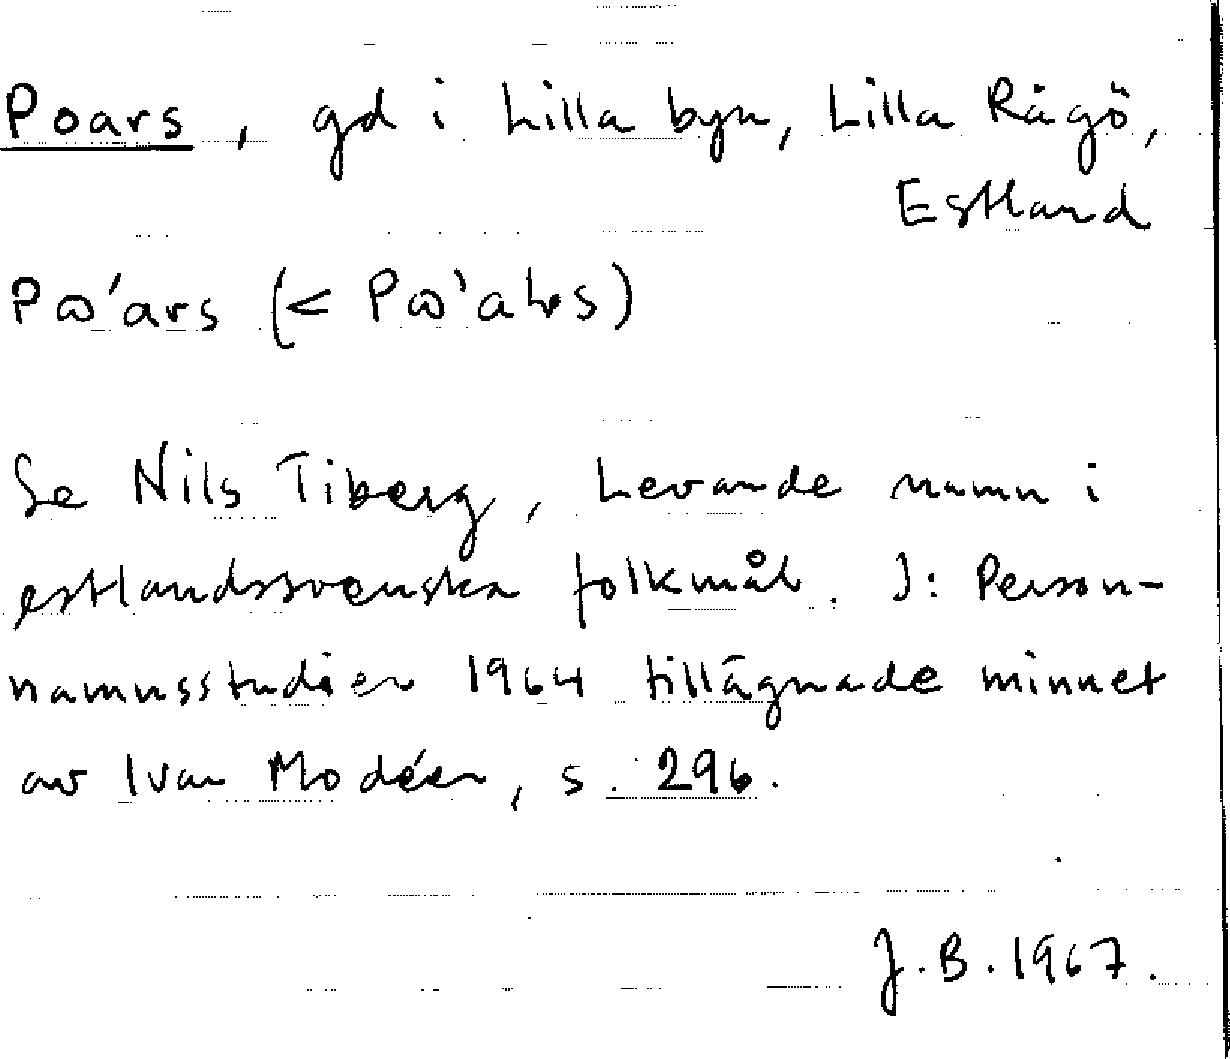 Poars, gd i Lilla byn, Lilla Rågö,
Estland
Pɷ'ars (< Pɷ'aƚs)
Se Nils Tiberg, Levande namn i
estlandssvenska folkmål. I: Person-
namnsstudier 1964 tillägnade minnet
av Ivar Modéer, s. 296.
J.B. 1967.